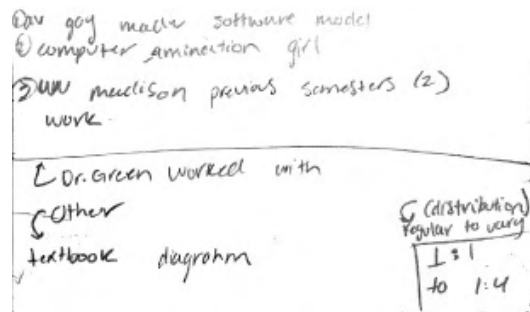 ① av guy made software model
② computer amination girl
③ UW madison previous semesters (2)
work
Dr. Green worked with
Other
textbook diagrahm
(distribution)
regular to vary
1:1
to 1:4